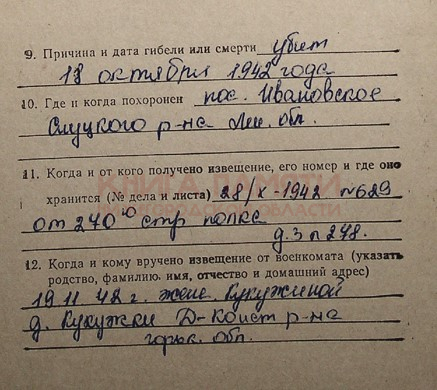 9. Причина и дата гибели или смерти убит
18 октября 1942 года
10. Где и когда похоронен пос. Ивановское
Слуцкого р-на Лен. обл.
11. Когда и от кого получено извещение, его номер и где оно
хранится (№ дела и листа) 28/X-1942 №629
от 270го стр полка
д. 3 л 278.
12. Когда и кому вручено извещение от военкомата (указать
родство, фамилию, имя, отчество и домашний адрес)
19 11. 42 г. жене Кукужиной
д. Кукужки Д-Конст р-на
горьк. обл.